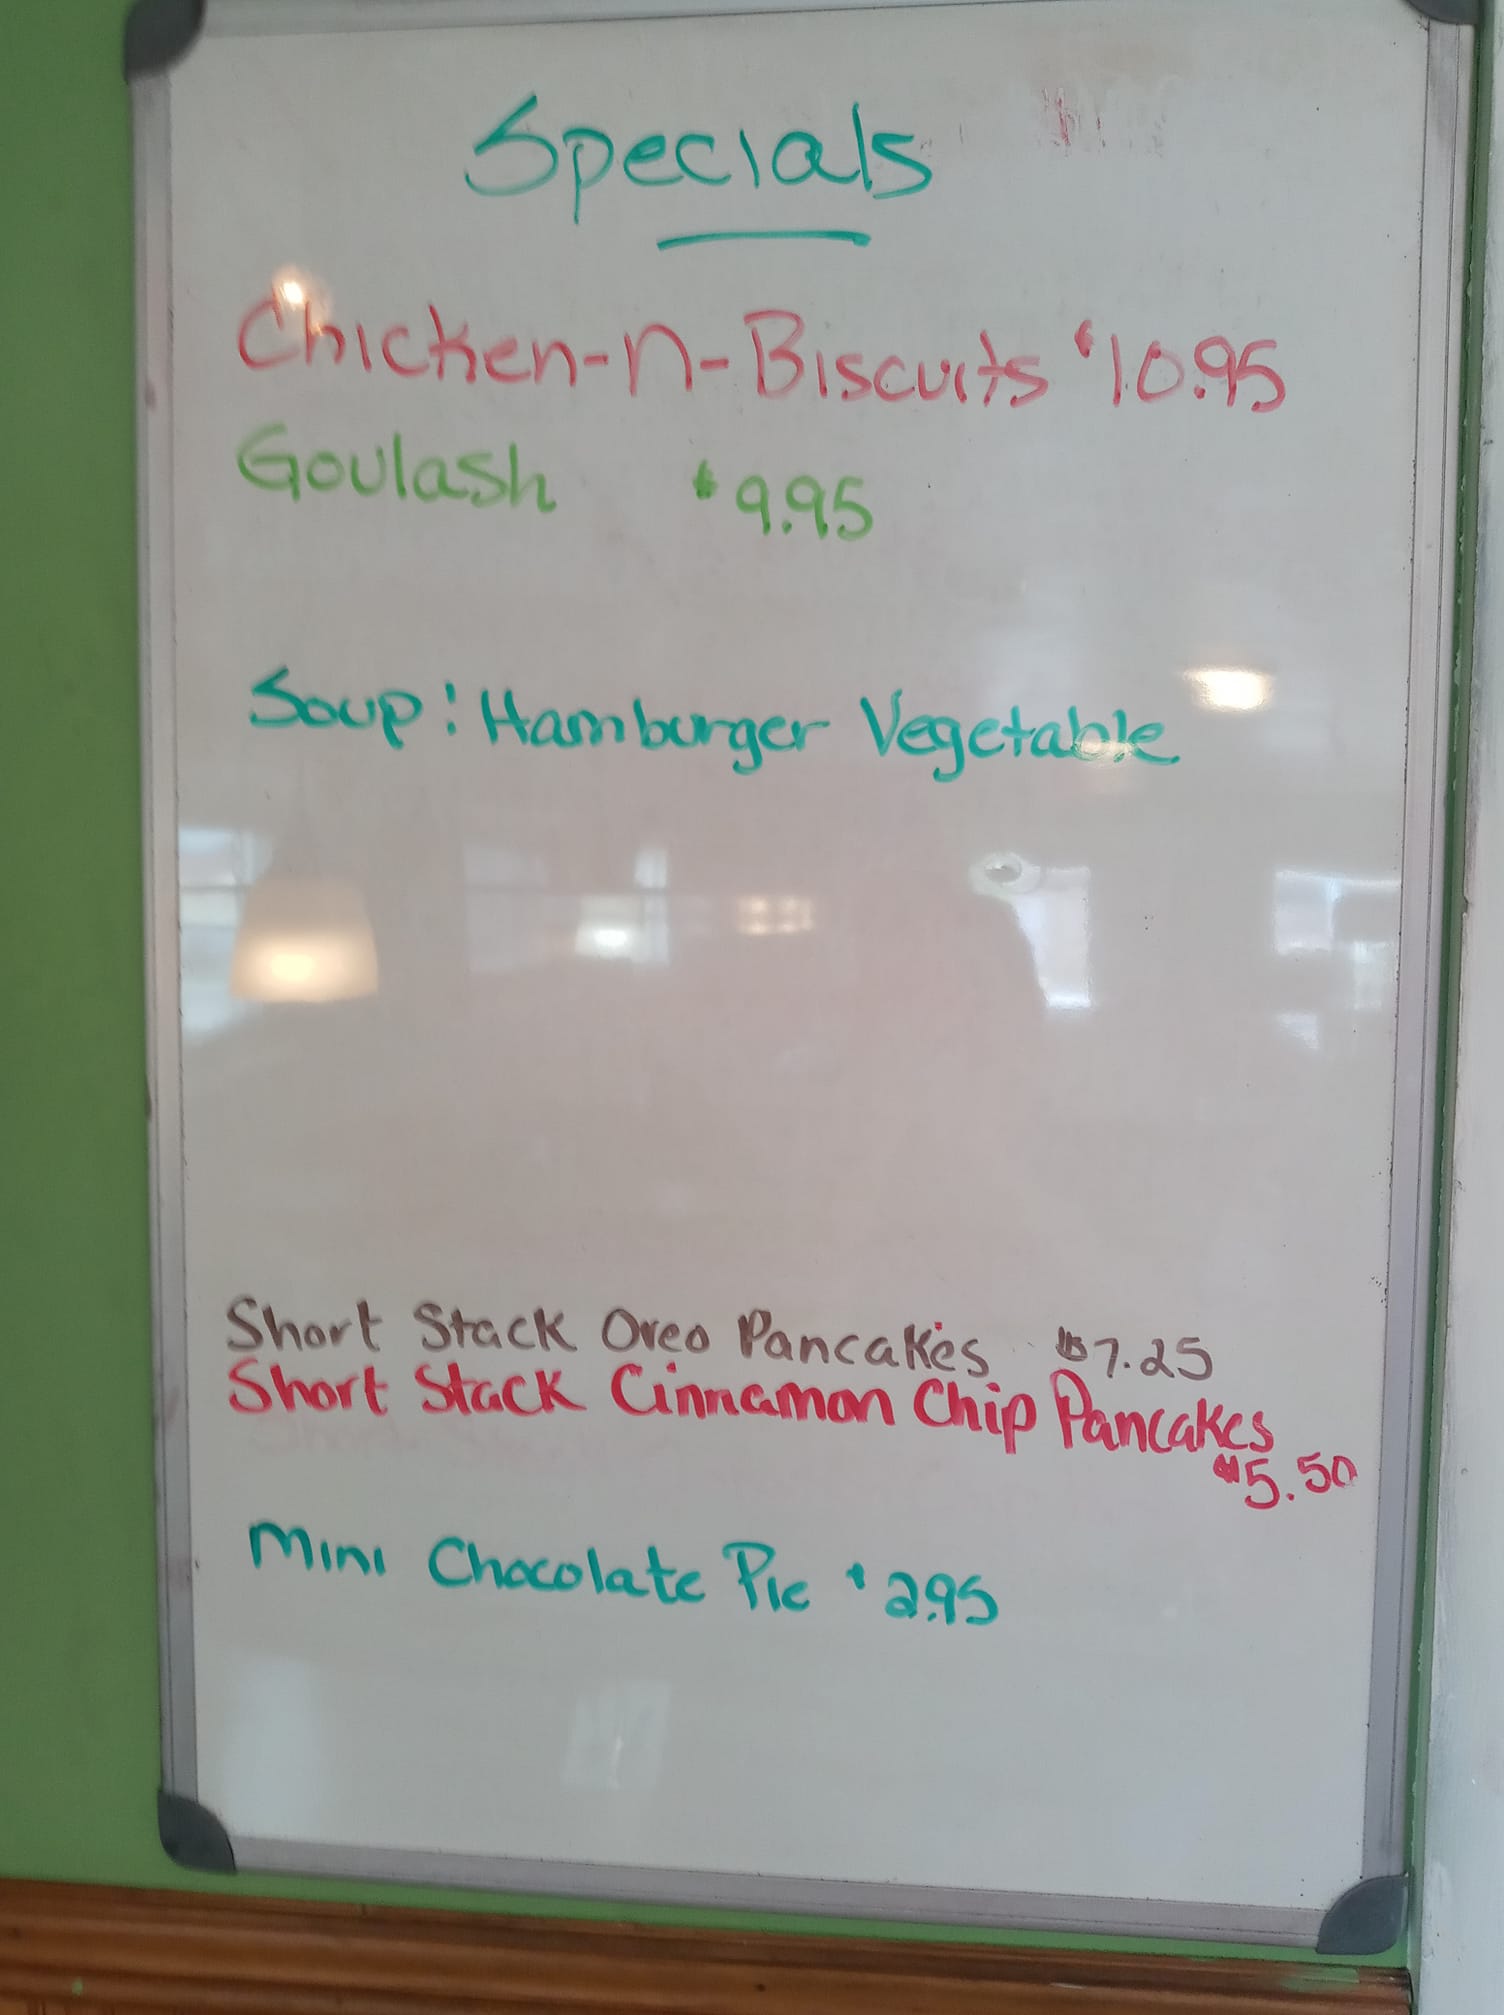 Specials
Chicken-n-Biscuits $10.95
Goulash $9.95
Soup: Hamburger Vegetable
Short Stack Oreo Pancakes $7.25
Short Stack Cinnamon Chip Pancakes
$5.50
Mini Chocolate Pie $2.95